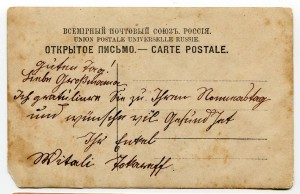 ВСЕМІРНЫЙ ПОЧТОВЫЙ СОЮЗЪ. РОССІЯ.
UNION POSTALE UNIVERSELLE RUSSIE.
ОТКРЫТОЕ ПИСЬМО. — CARTE POSTALE.
Guten Tag!
Liebe Großmama
Ich gratulinere Sie zu Ihrem Nomenstag
und wünsche vil Gesundhat
Ihr Enkel
Witali Tokareff